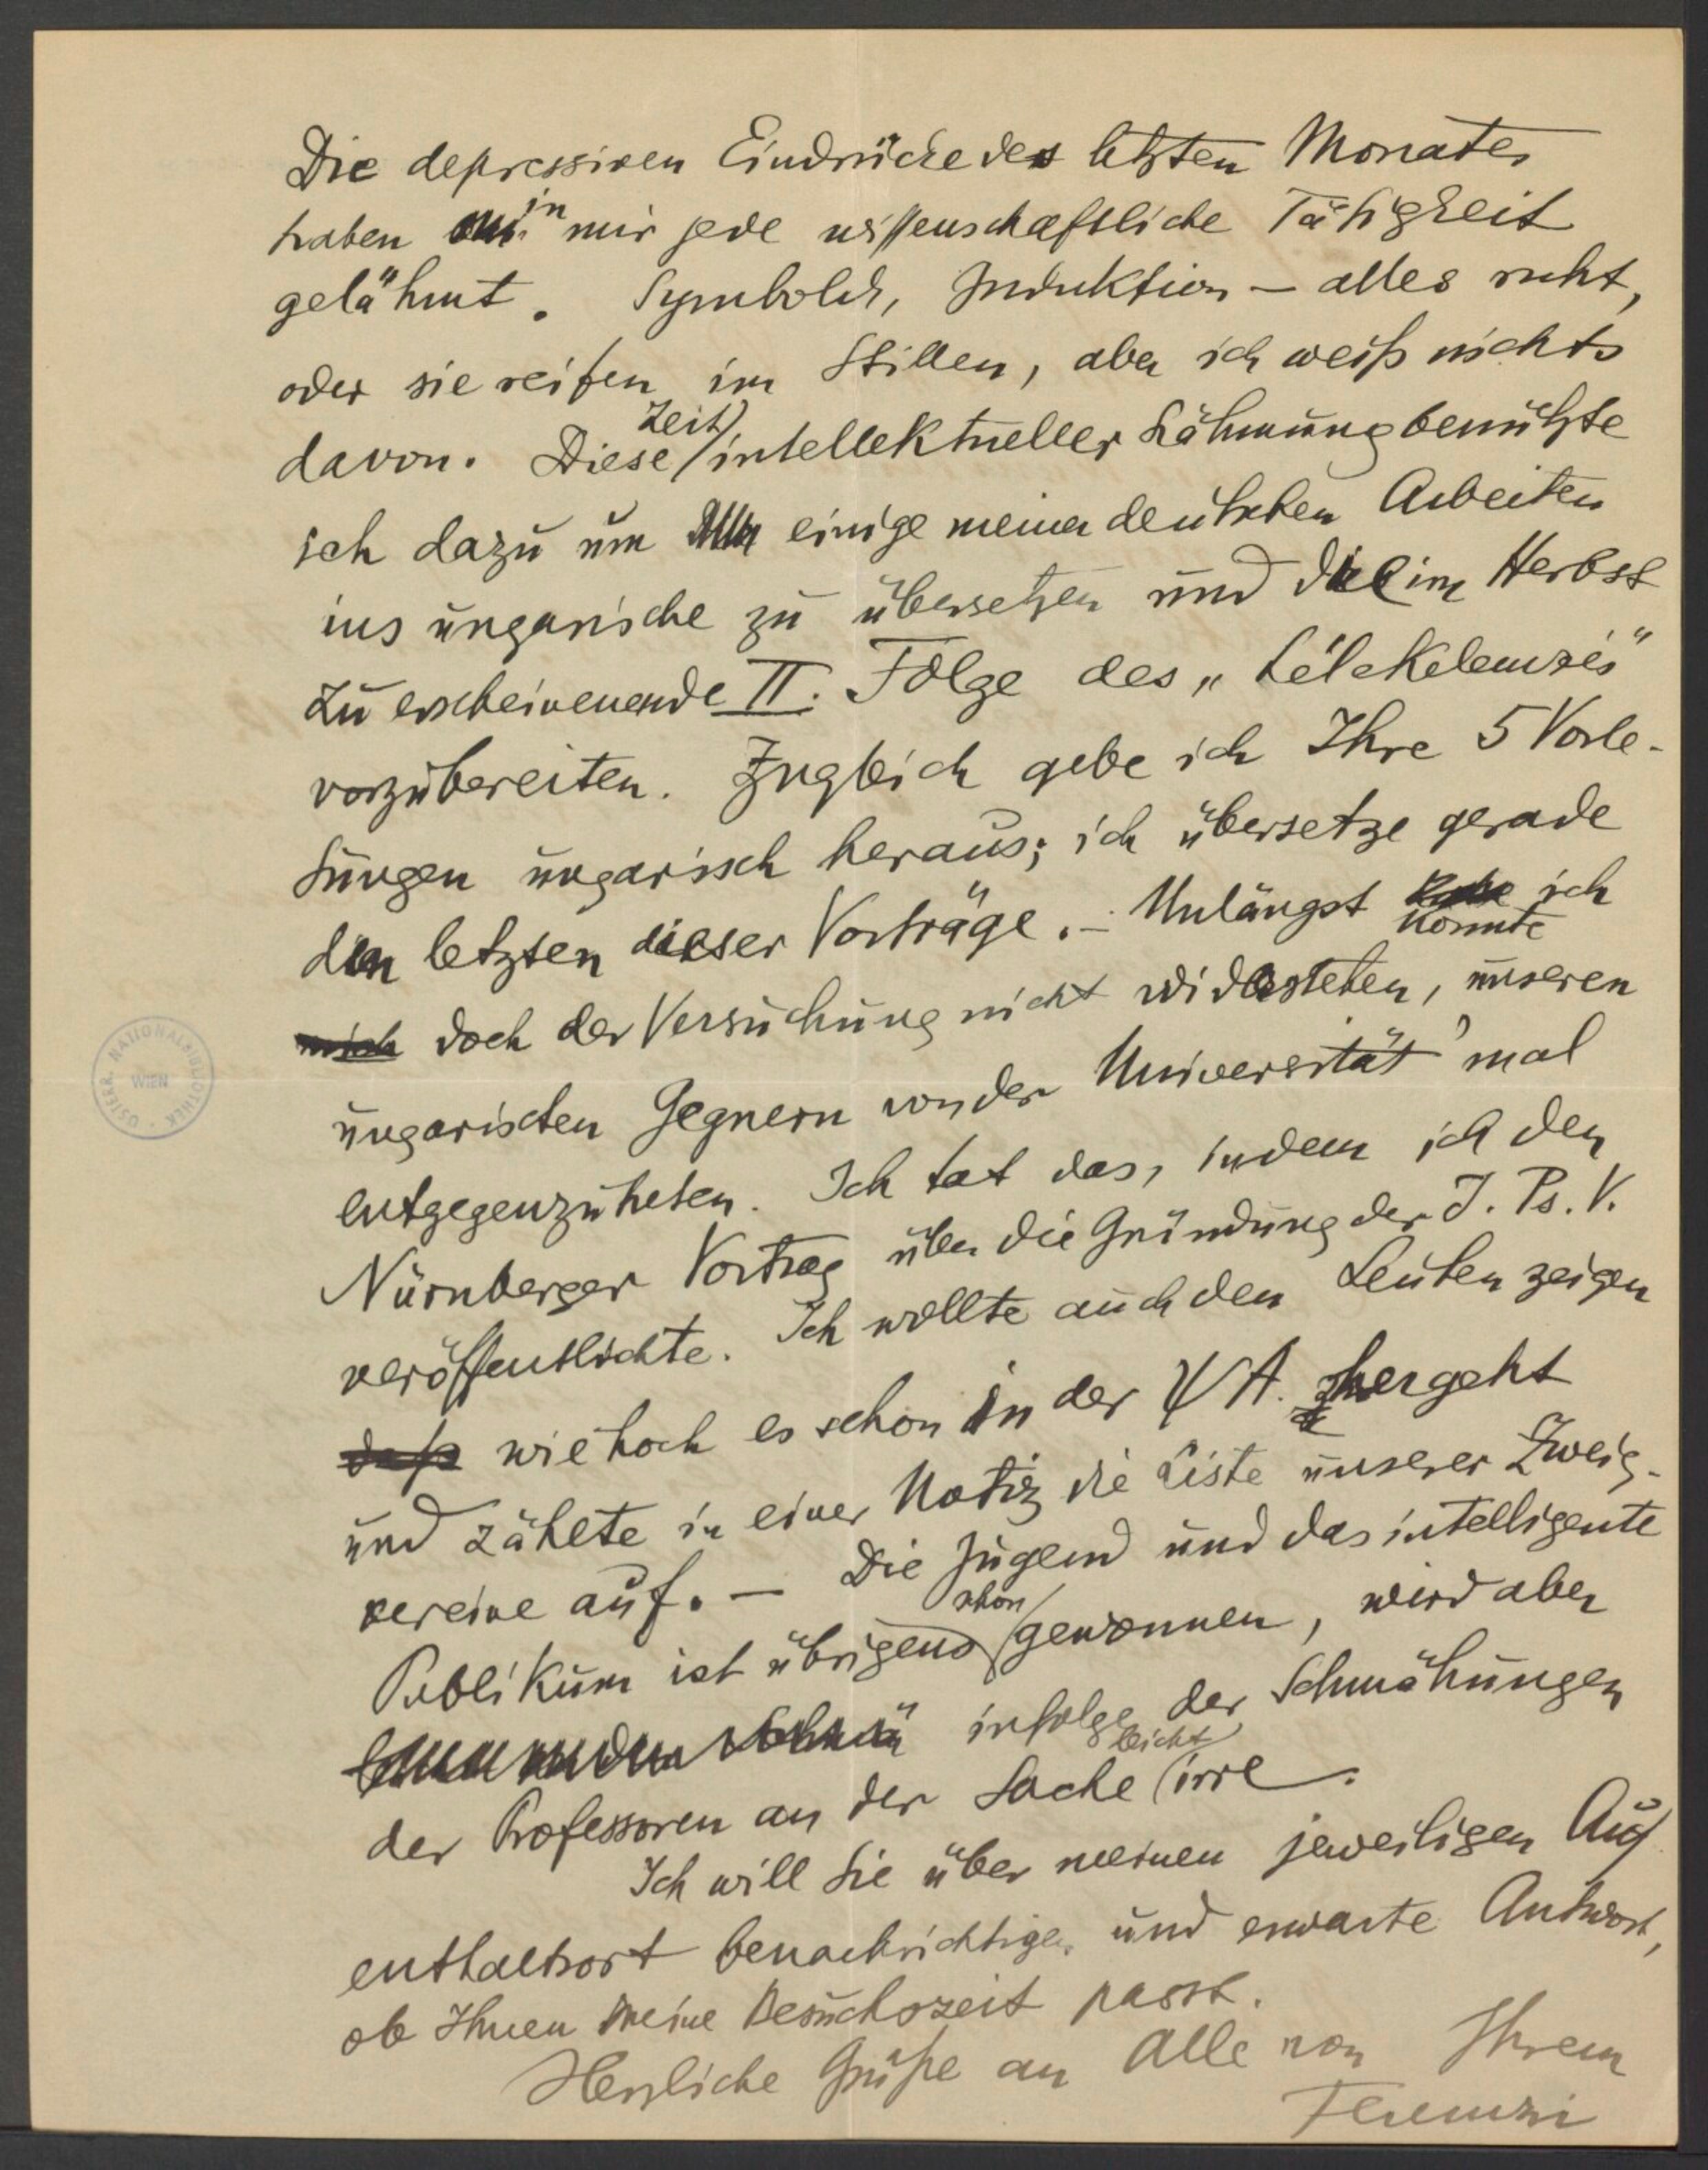 Die depressiven Eindrücke des letzten Monates
haben in mir jede wissenschaftliche Tätigkeit
gelähmt. Symbolik, Induktion – alles ruht,
oder sie reifen im Stillen, aber ich weiß nichts
davon. Diese Zeit intellektueller Lähmung benützte
ich dazu um einige meiner deutschen Arbeiten
ins ungarische zu übersetzen und die im Herbst
zu erscheinenende II. Folge des „Lélekelemzés“
vorzubereiten. Zugleich gebe ich Ihre 5 Vorle-
sungen ungarisch heraus; ich übersetze gerade
den letzten dieser Vorträge. – Unlängst konnte ich
mich doch der Versuchung nicht widerstehen, unseren
ungarischen Gegnern von der Universität 'mal
entgegenzutreten. Ich tat das, indem ich den
Nürnberger Vortrag über die Gründung der I. Ps. V.
veröffentlichte. Ich wollte auch den Leuten zeigen
daß wie hoch es schon in der ΨA. hergeht
und zählte in einer Notiz die Liste unserer Zweig-
vereine auf. – Die Jugend und das intelligente
Publikum ist übrigens schon gewonnen, wird aber
infolge der Schmähungen
der Professoren an der Sache leicht irre.
Ich will Sie über meinen jeweiligen Auf
enthaltsort benachrichtigen und erwarte Antwort,
ob Ihnen meine Besuchszeit passt.
Herzliche Grüße an Alle von Ihrem
Ferenczi
ÖSTERR. NATIONALBIBLIOTHEK
WIEN